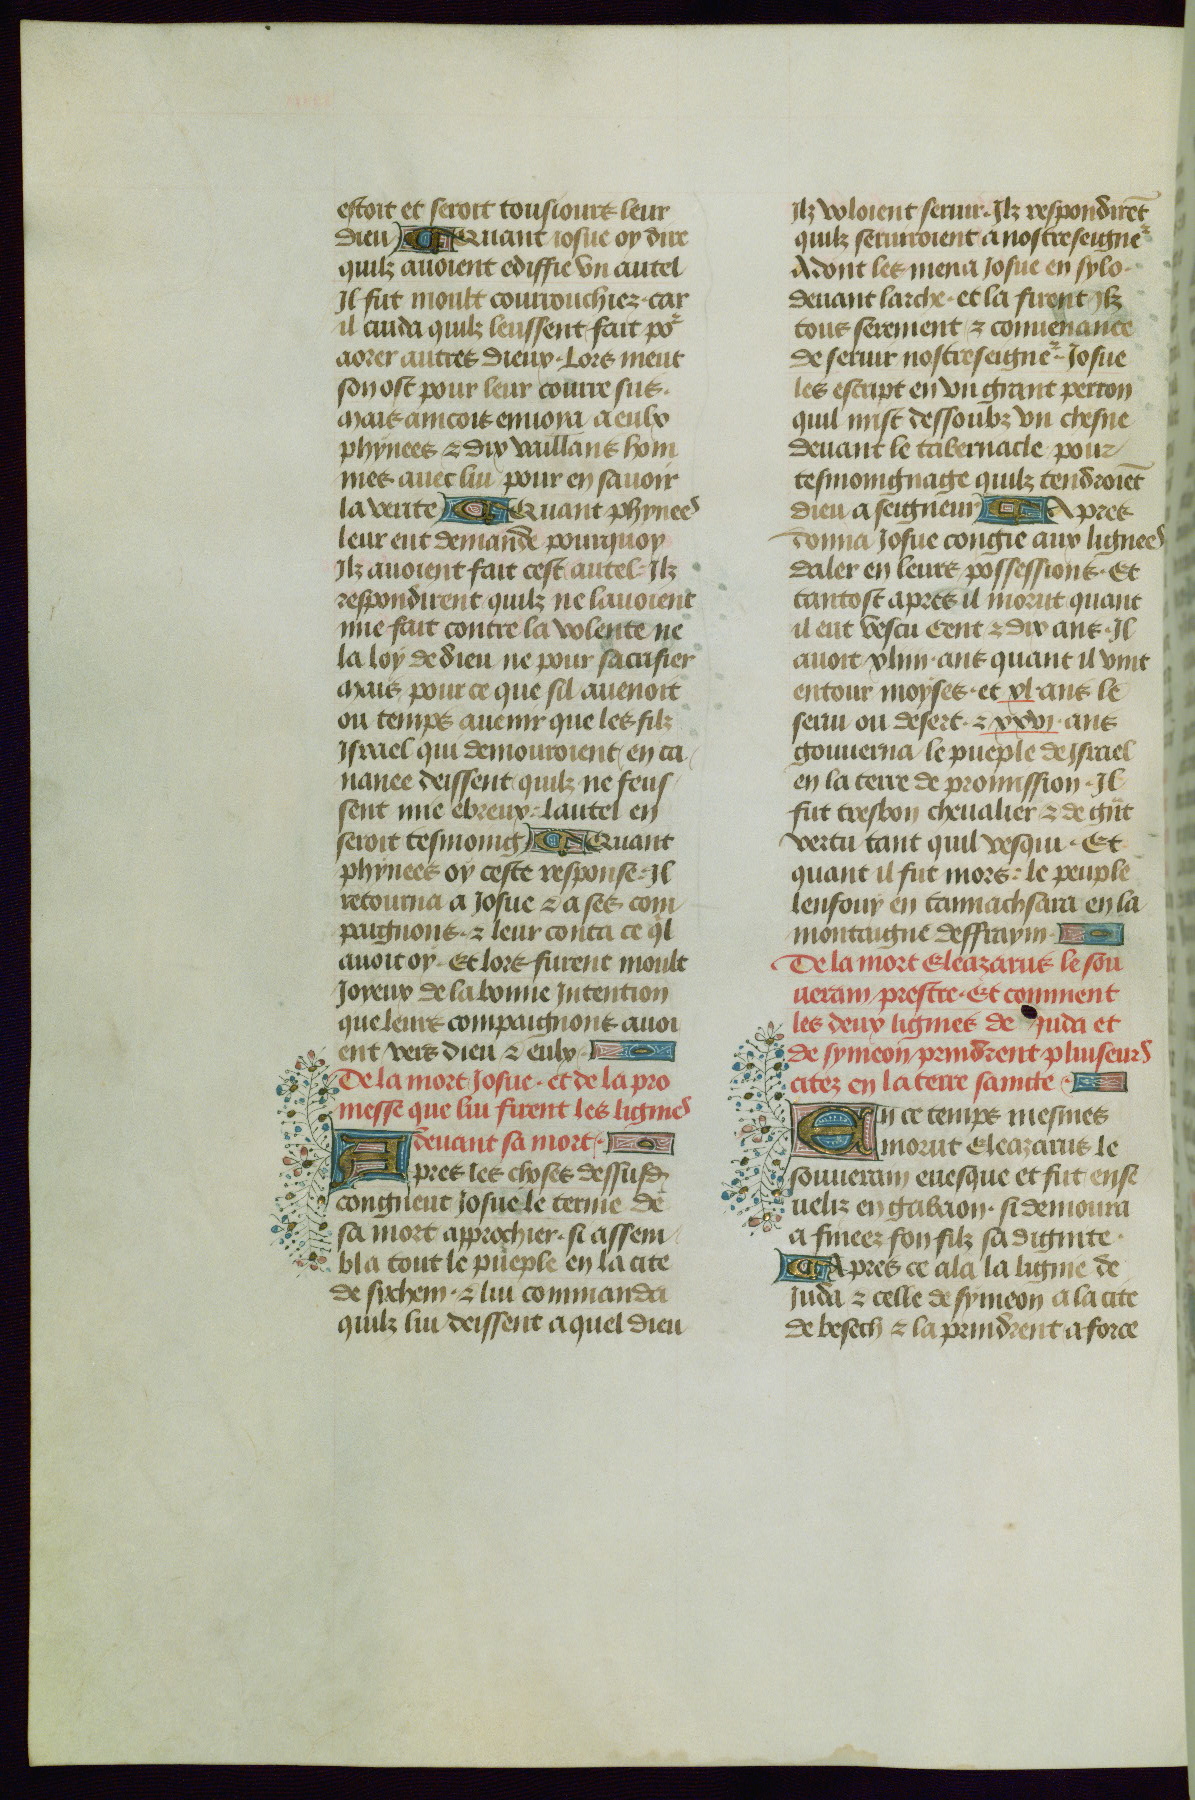 estoit et seroit tousiours leur
dieu Quant iosue oy dire
quilz auoient ediffie vn autel
Il fut moult courrouchiez. car
il cuida quilz leussent fait poʳ
aorer autres dieux. Lors meut
son ost pour leur courre sus.
Mais aincois enuoia a eulx
phynees ⁊ dix vaillans hom
mes auec lui pour en sauoir
la verite Quant phynees
leur eut demande pourquoy
Ilz auoient fait cest autel. Ilz
respondirent quilz ne lauoient
mie fait contre la volente ne
la loy de dieu ne pour sacrifier
Mais pour ce que sil auenoit
ou temps auenir que les filz
Israel qui demouroient en ca
nanee deissent quilz ne feus
sent mie ebreux. lautel en
seroit tesmoing Quant
phynees oy ceste response. Il
retourna a Josue ⁊ a ses com
paignons. ⁊ leur conta ce q̄l
auoit oy. Et lors furent moult
Joyeux de la bonne Intention
que leurs compaignons auoi
ent vers dieu ⁊ eulx.
De la mort Josue. et de la pro
messe que lui firent les lignies
deuant sa mort.
Apres les choses dessusd̄
congneut Josue le terme de
sa mort approchier. si assem
bla tout le pueple en la cite
de sychem. ⁊ lui commanda
quilz lui deissent a quel dieu
Ilz voloient seruir. Ilz respondirēt
quilz seruiroient a nostreseigneʳ
Adont les mena Josue en sylo.
deuant larche. et la firent Ilz
tous serement ⁊ conuenance
de seruir nostreseigneʳ. Josue
les escript en vn grant perron
quil mist dessoubz vn chesne
deuant le tabernacle pour
tesmoingnage quilz tendroiēt
dieu a seigneur Apres
donna Josue congie aux lignees
daler en leurs possessions. Et
tantost apres il morut quant
il eut vescu Cent ⁊ dix ans. Il
auoit xliiii. ans quant il vint
entour moyses. et xl. ans le
serui ou desert. ⁊ xxvi. ans
gouuerna le pueple de Israel
en la terre de promission. Il
fut tresbon cheualier ⁊ de gn̄t
vertu tant quil vesqui. Et
quant il fut mors. le peuple
lenfouy en tannachsara en la
montaigne deffraym.
De la mort Eleazarus le sou
uerain prestre. Et comment
les deux lignies de Juda et
de symeon prindrent pluiseurs
citez en la terre saincte.
En ce temps mesmes
morut Eleazarus le
souuerain euesque et fut ense
ueliz en gabaon. si demoura
a finees son filz sa dignite.
Apres ce ala la lignie de
Juda ⁊ celle de symeon a la cite
de besech ⁊ la prindrent a force